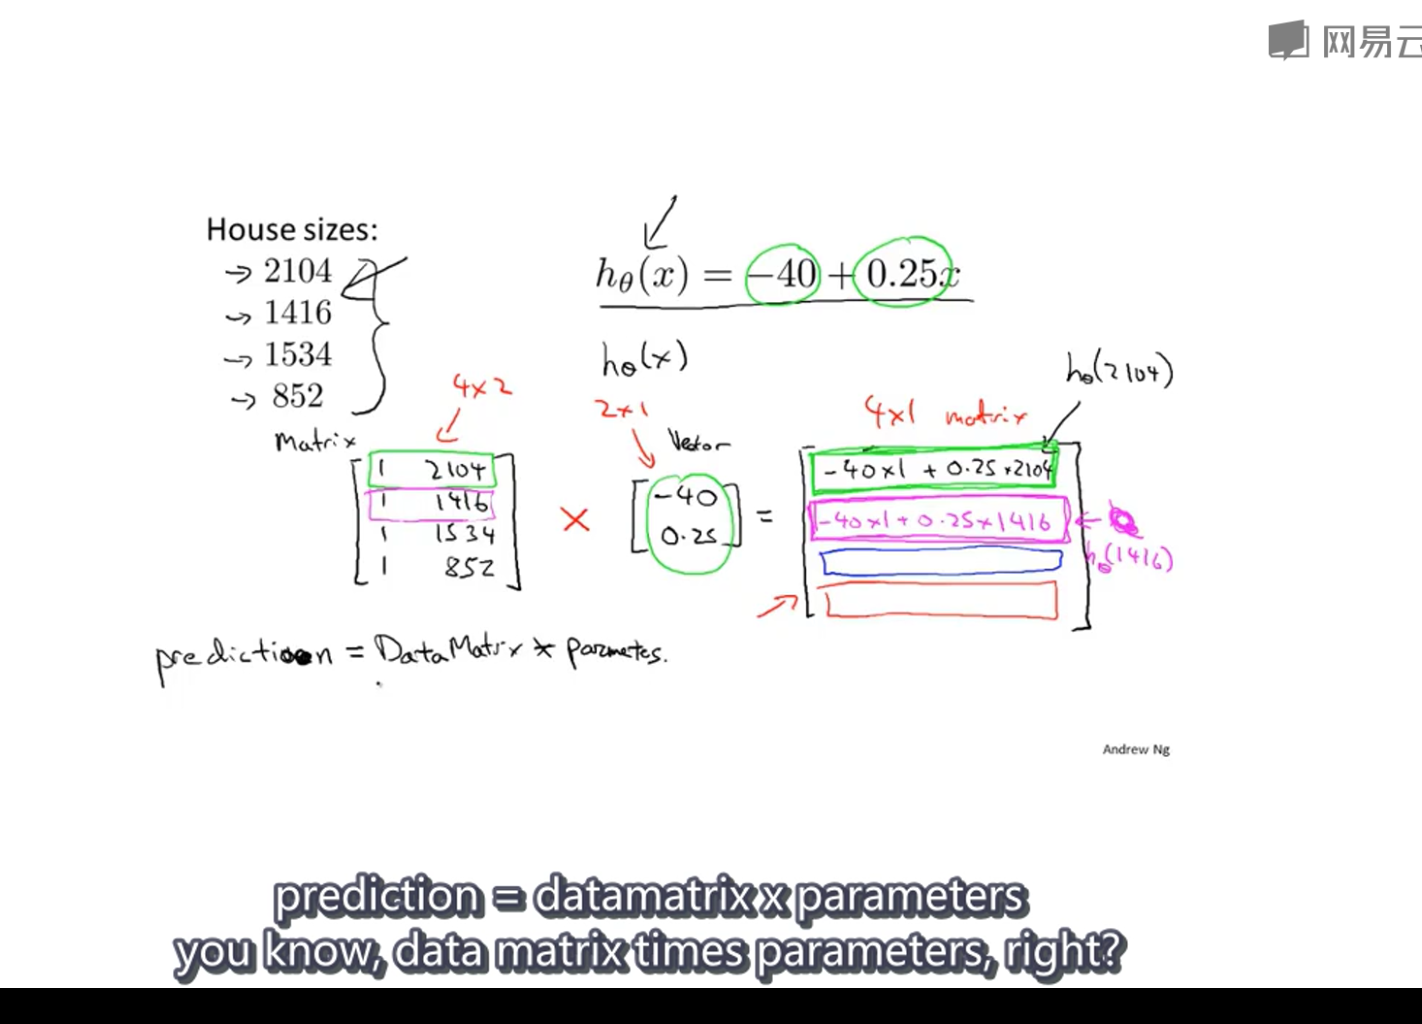 网易云
House sizes:
→ 2104
→ 1416
→ 1534
→ 852
hθ(x) = −40 + 0.25x
hθ(x)
hθ(2104)
4x2
2x1
4x1 matrix
Matrix
Vector
1 2104
1 1416
1 1534
1 852
×
-40
0.25
=
-40x1 + 0.25x2104
-40x1 + 0.25x1416
hθ(1416)
prediction = DataMatrix * parmetes.
Andrew Ng
prediction = datamatrix x parameters
you know, data matrix times parameters, right?